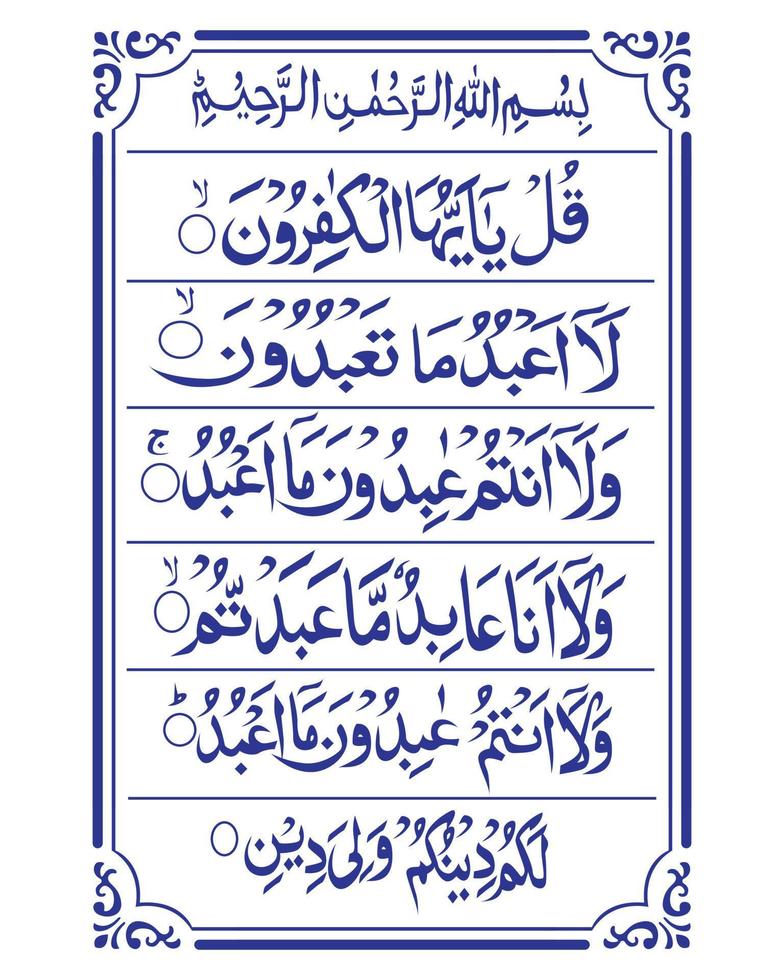 بِسْمِ اللهِ الرَّحْمٰنِ الرَّحِيْمِ ؕ
قُلْ يٰۤاَيُّهَا الْكٰفِرُوْنَ ۙ
لَاۤ اَعْبُدُ مَا تَعْبُدُوْنَ ۙ
وَلَاۤ اَنْتُمْ عٰبِدُوْنَ مَاۤ اَعْبُدُ ۚ
وَلَاۤ اَنَا عَابِدٌ مَّا عَبَدْتُّمْ ۙ
وَلَاۤ اَنْتُمْ عٰبِدُوْنَ مَاۤ اَعْبُدُ ؕ
لَكُمْ دِيْنُكُمْ وَلِىَ دِيْنِ ۝